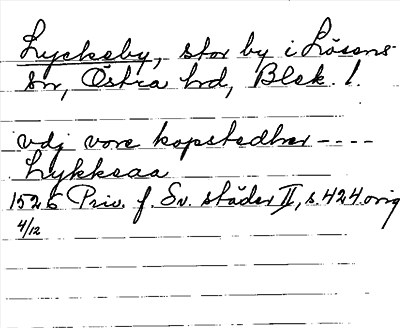 Lyckeby, stor by i Lösens
sn, Östra hd, Blek. l.
vdj vore kopstedher ----
Lykkesaa
1526 Priv. f. Sv. städer II, s. 424 orig
4/12